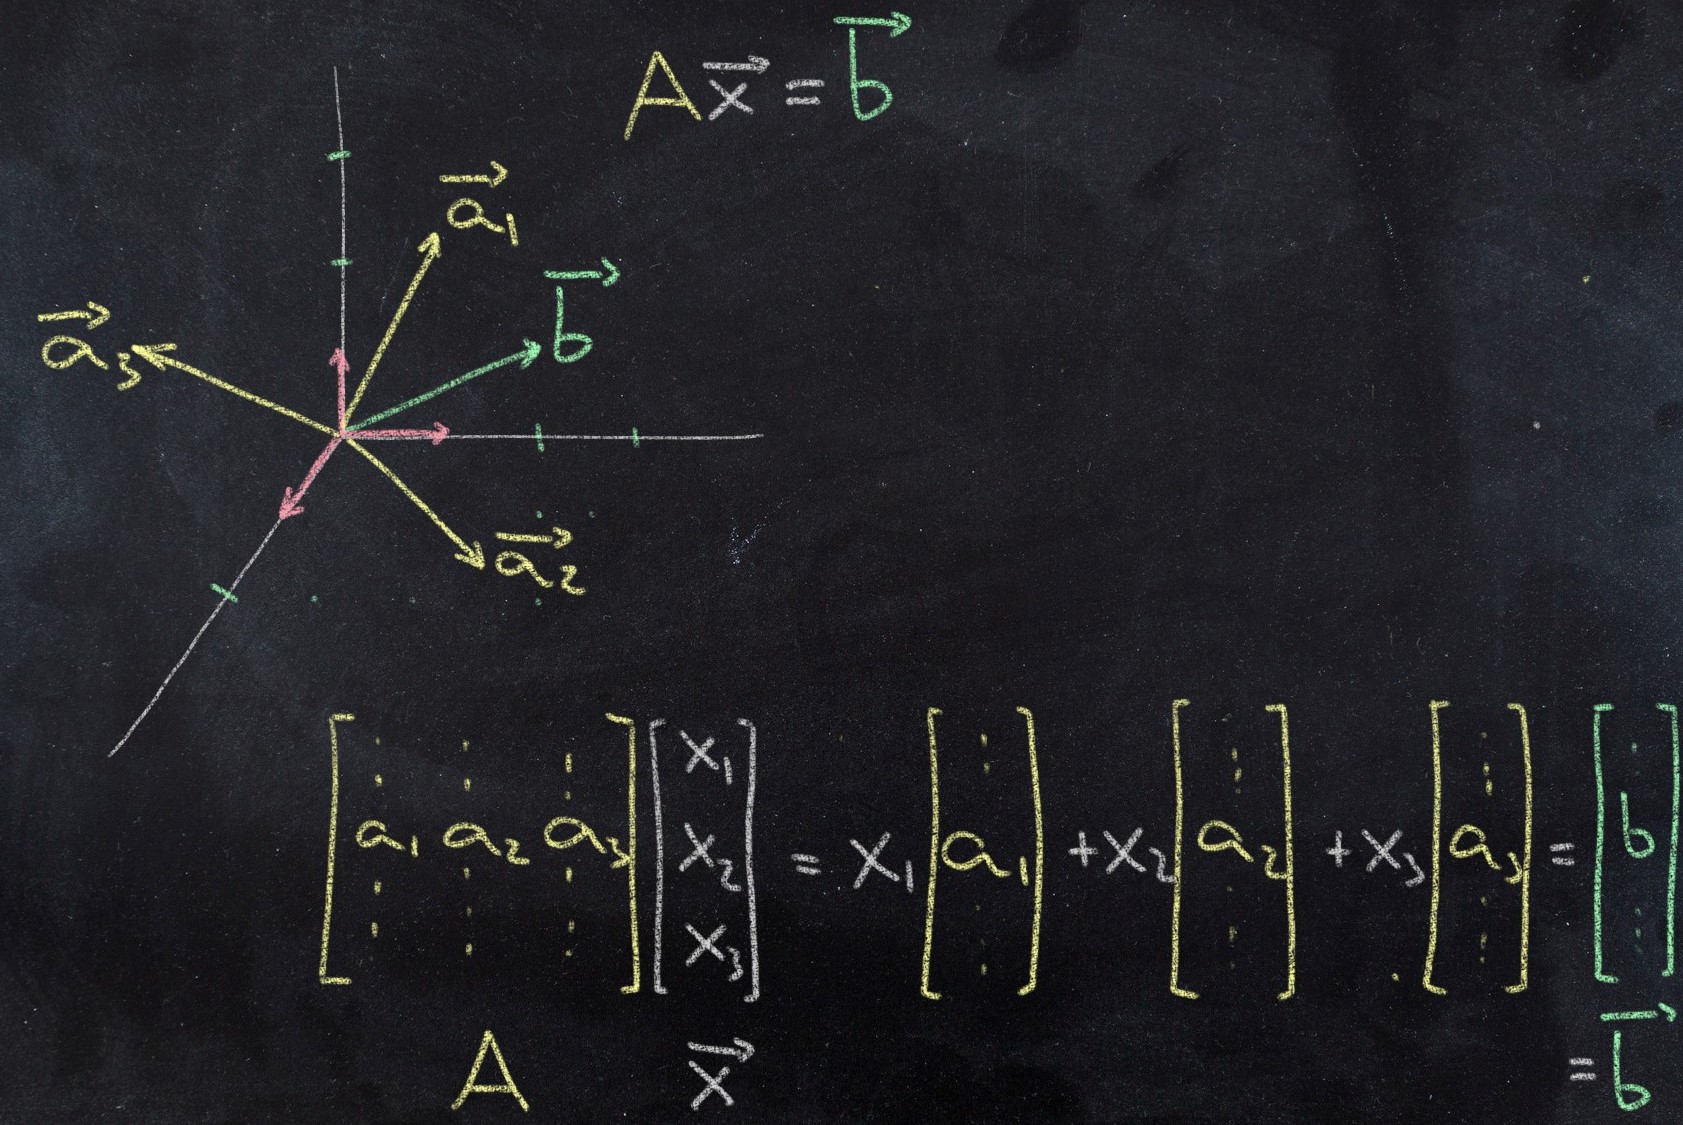 A x⃗ = b⃗
a⃗₁
b⃗
a⃗₃
a⃗₂
[a₁ a₂ a₃] [x₁ x₂ x₃] = x₁ [a₁] + x₂ [a₂] + x₃ [a₃] = [b]
A x⃗ = b⃗